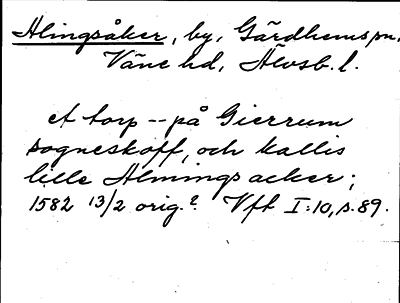 Alingsåker, by, Gärdhems sn,
Väne hd, Älvsb. l.
et torp -- på Gierrum
sogneskoff, och kallis
lille Almings acker;
1582 13/2 orig.? Vft I:10, s. 89.